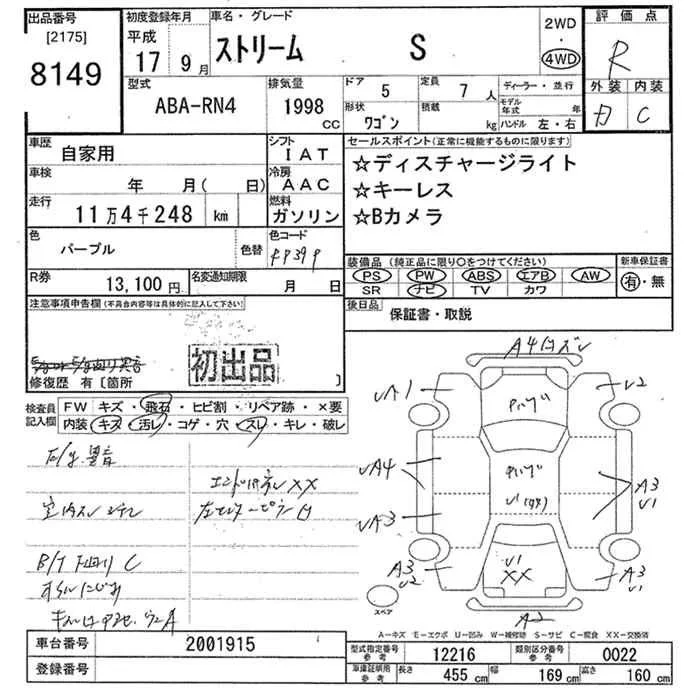 出品番号
[2175]
8149
初度登録年月
平成
17 9月
車名・グレード
ストリーム S
2WD
・
4WD
評価点
R
外装 内装
C
型式
ABA-RN4
排気量
1998
CC
ドア 5
定員 7 人
ディーラー・並行
形状
ワゴン
積載
kg
モデル年式 年
ハンドル 左・右
車歴
自家用
シフト
IAT
車検
年 月( 日)
冷房
AAC
走行
11万4千248 km
燃料
ガソリン
セールスポイント(正常に機能するものに限ります)
☆ディスチャージライト
☆キーレス
☆Bカメラ
色
パープル
色替
色コード
R券
13,100 円
名変通知期限
月 日
装備品 (純正品に限り○をつけてください)
PS PW ABS エアB AW
SR ナビ TV カワ
新車保証書
有・無
後日品
保証書・取説
注意事項申告欄(不具合内容等は具体的に記入して下さい)
初出品
修復歴 有〔箇所 〕
検査員記入欄
FW キズ・飛石・ヒビ割・リペア跡・×要
内装 キズ・汚レ・コゲ・穴・スレ・キレ・破レ
E/g 異音
B/T 下回り C
A1
U2
A4
A3
U1
A3
A3
U2
U1
XX
A3
U1
A2
スペア
A―キズ E―エクボ U―凹み W―補修跡 S―サビ C―腐食 XX―交換済
車台番号
2001915
登録番号
型式指定番号 参考
12216
類別区分番号 参考
0022
車庫証明用 参考
長さ 455 cm
幅 169 cm
高さ 160 cm